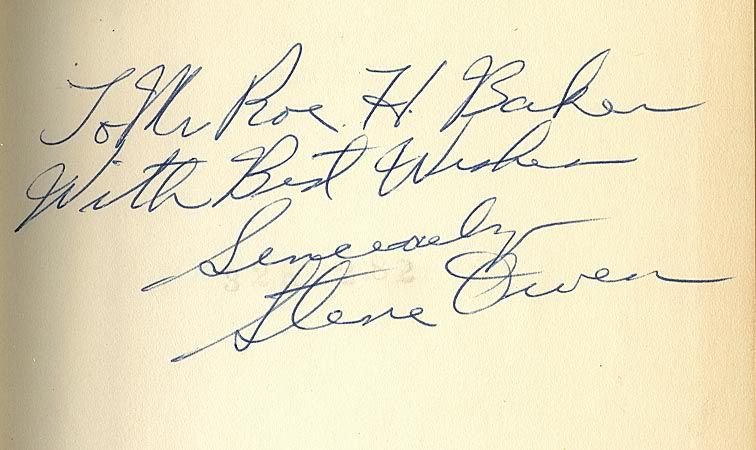 To Mr Roe. H. Baker
With Best Wishes
Sincerely
Steve Owen